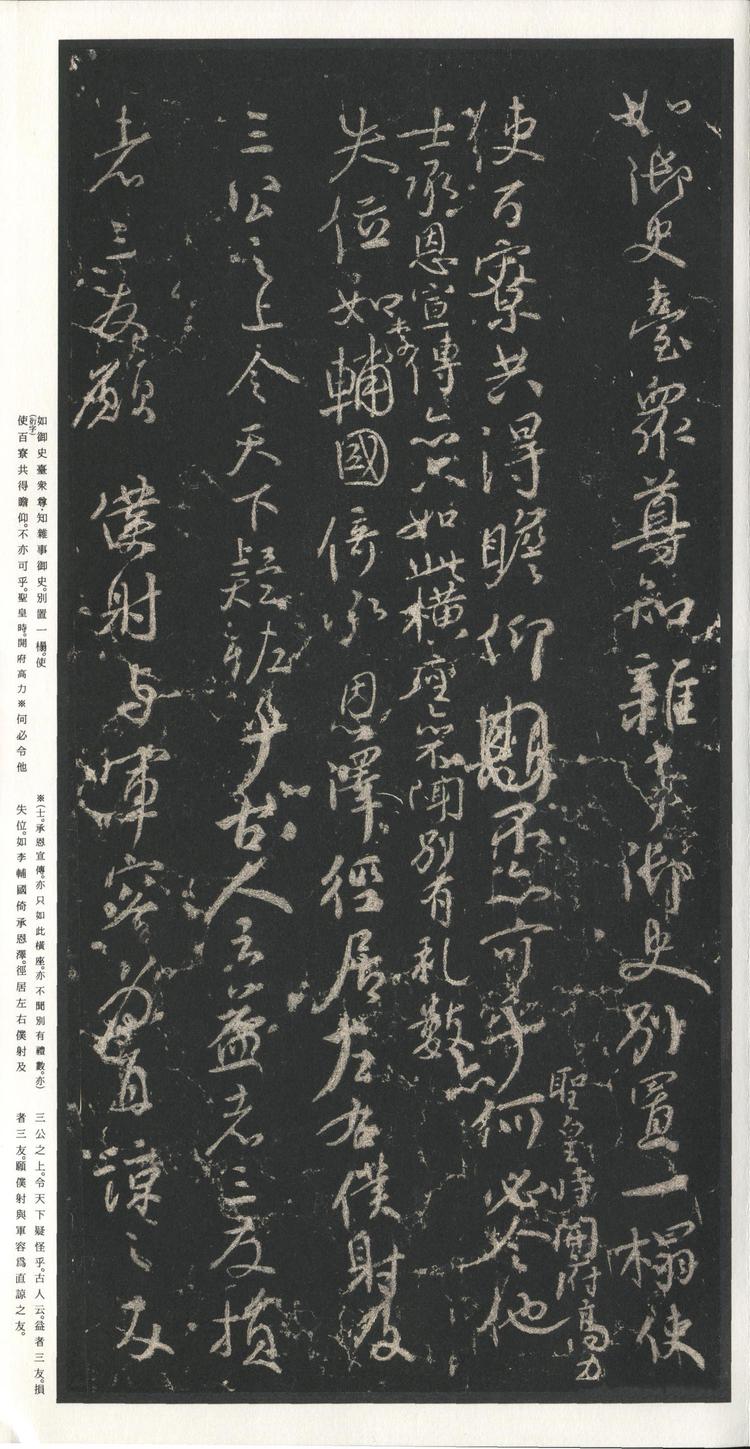 如御史臺衆尊知雜事御史別置一榻使
使百寮共得瞻仰不亦可乎何必令他
聖皇時開府高力
士承恩宣傳亦只如此橫座亦不聞別有礼數亦
失位如李輔國倚承恩澤徑居左右僕射及
三公之上令天下疑恠乎古人云益者三友損
者三友願僕射與軍容為直諒之友
如御史臺衆尊·知雜事御史。別置一榻。使
(衍字)
使百寮共得瞻仰。不亦可乎。聖皇時。開府高力※何必令他
※(士。承恩宣傳。亦只如此橫座。亦不聞別有禮數。亦)
失位。如李輔國倚承恩澤。徑居左右僕射及
三公之上。令天下疑怪乎。古人云。益者三友。損
者三友。願僕射與軍容爲直諒之友。